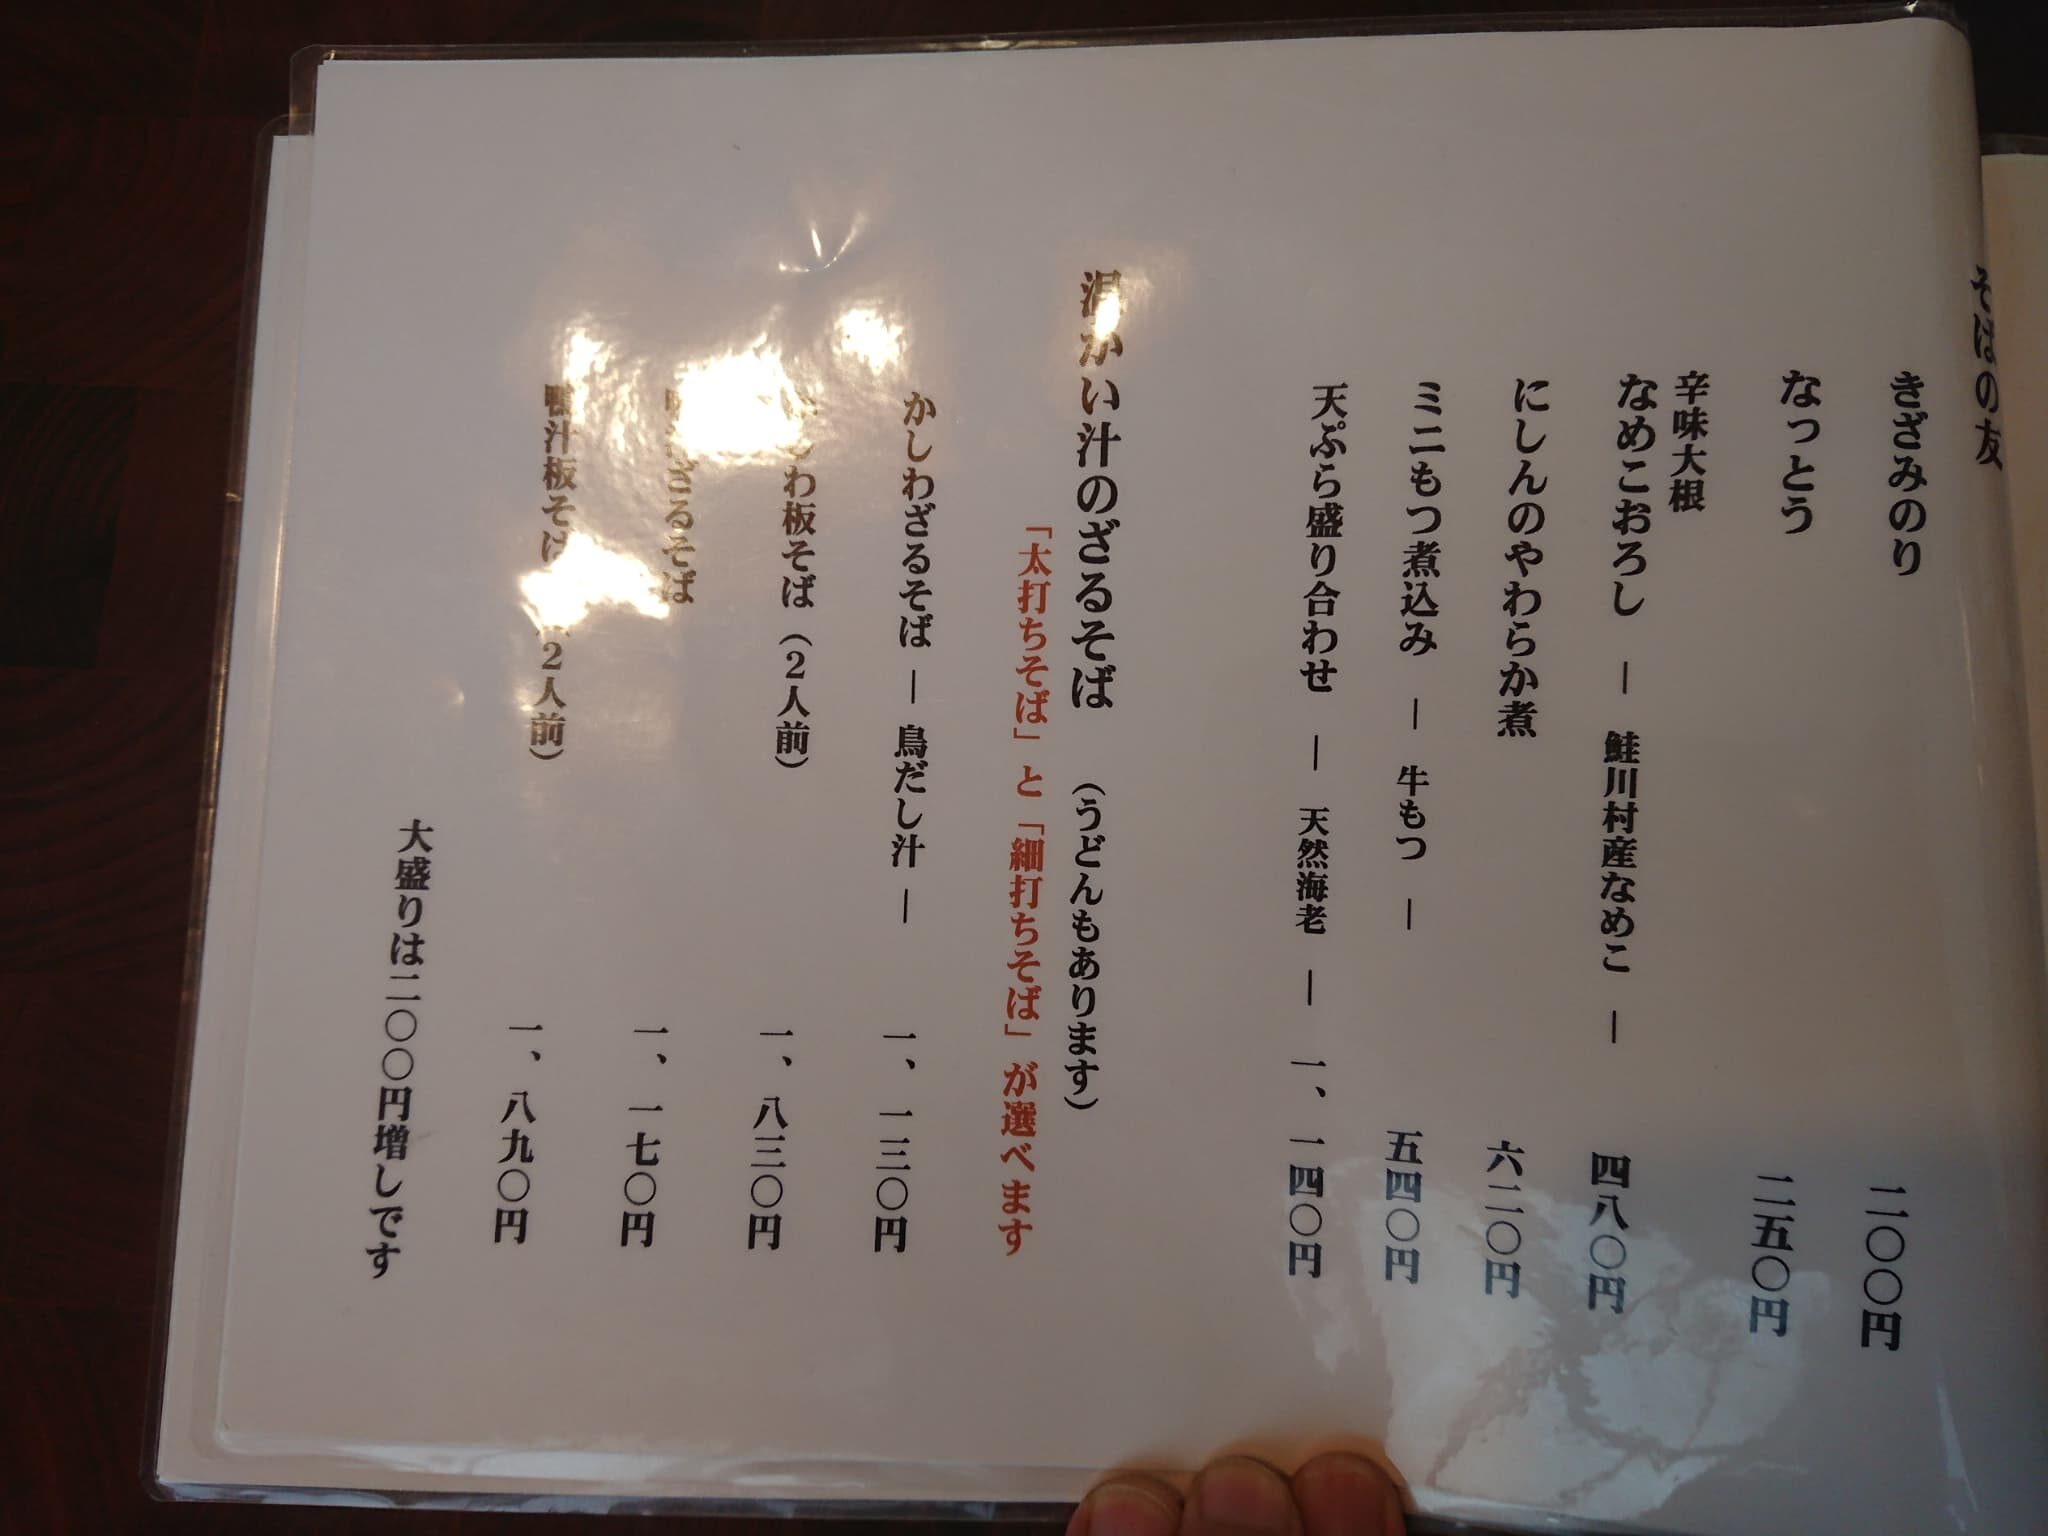 そばの友
きざみのり 二〇〇円
なっとう 二五〇円
辛味大根
なめこおろし ― 鮭川村産なめこ ― 四八〇円
にしんのやわらか煮 六二〇円
ミニもつ煮込み ― 牛もつ ― 五四〇円
天ぷら盛り合わせ ― 天然海老 ― 一、一四〇円
温かい汁のざるそば (うどんもあります)
「太打ちそば」と「細打ちそば」が選べます
かしわざるそば ― 鳥だし汁 ― 一、一三〇円
わ板そば (2人前) 一、八三〇円
ざるそば 一、一七〇円
鴨汁板そば (2人前) 一、八九〇円
大盛りは二〇〇円増しです